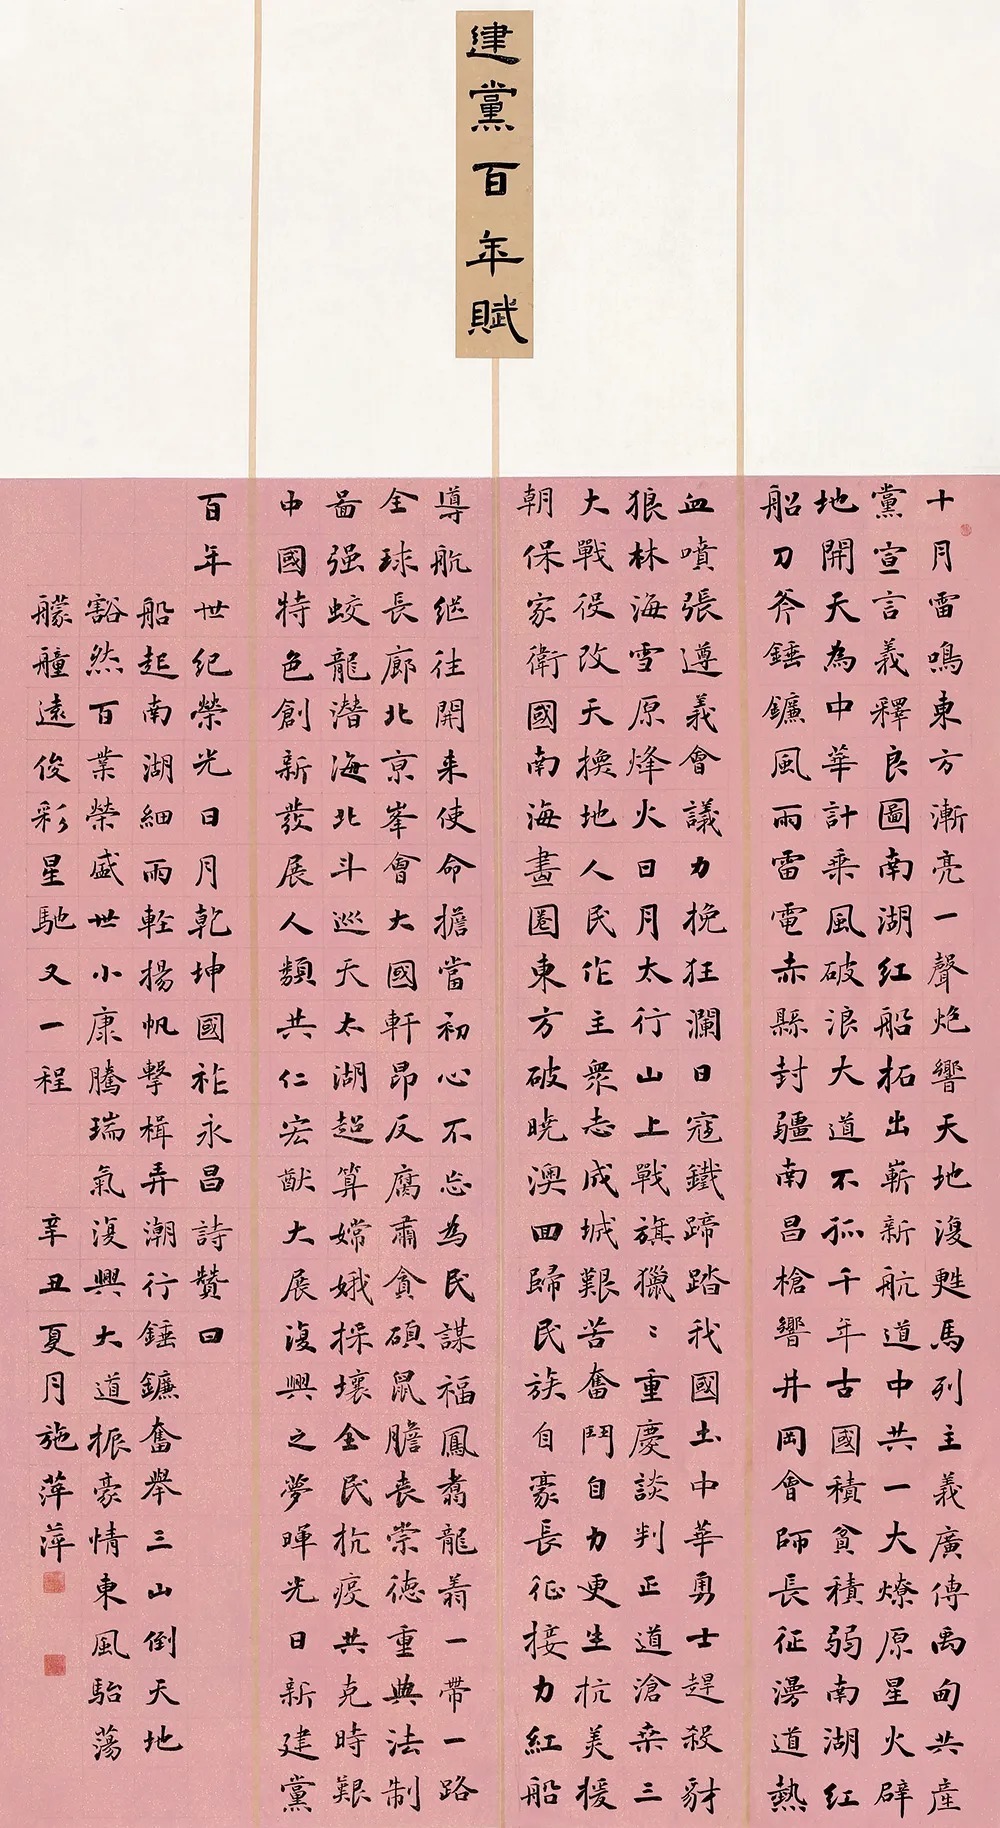 建黨百年賦
十月雷鳴東方漸亮一聲炮響天地復甦馬列主義廣傳禹甸共産
黨宣言義釋良圖南湖紅船拓出嶄新航道中共一大燎原星火辟
地開天為中華計乘風破浪大道不孤千年古國積貧積弱南湖紅
船刀斧錘鐮風雨雷電赤縣封疆南昌槍響井岡會師長征漫道熱
血噴張遵義會議力挽狂瀾日寇鐵蹄踏我國土中華勇士趕殺豺
狼林海雪原烽火日月太行山上戰旗獵〻重慶談判正道滄桑三
大戰役改天換地人民作主衆志成城艱苦奮鬥自力更生抗美援
朝保家衛國南海畫圈東方破曉澳回歸民族自豪長征接力紅船
導航继往開来使命擔當初心不忘為民謀福鳳翥龍一帶一路
全球長廊北京峯會大國軒昂反腐肅貪碩鼠膽喪崇德重典法制
啚强蛟龍潛海北斗巡天太湖超算嫦娥探壤全民抗疫共克時艱
中國特色創新發展人類共仁宏猷大展復興之夢暉光日新建黨
百年世紀榮光日月乾坤國祚永昌詩贊曰
船起南湖細雨軽揚帆擊楫弄潮行錘鐮奮舉三山倒天地
豁然百業榮盛世小康騰瑞氣復興大道振豪情東風駘蕩
艨艟遠俊彩星馳又一程 辛丑夏月施萍萍